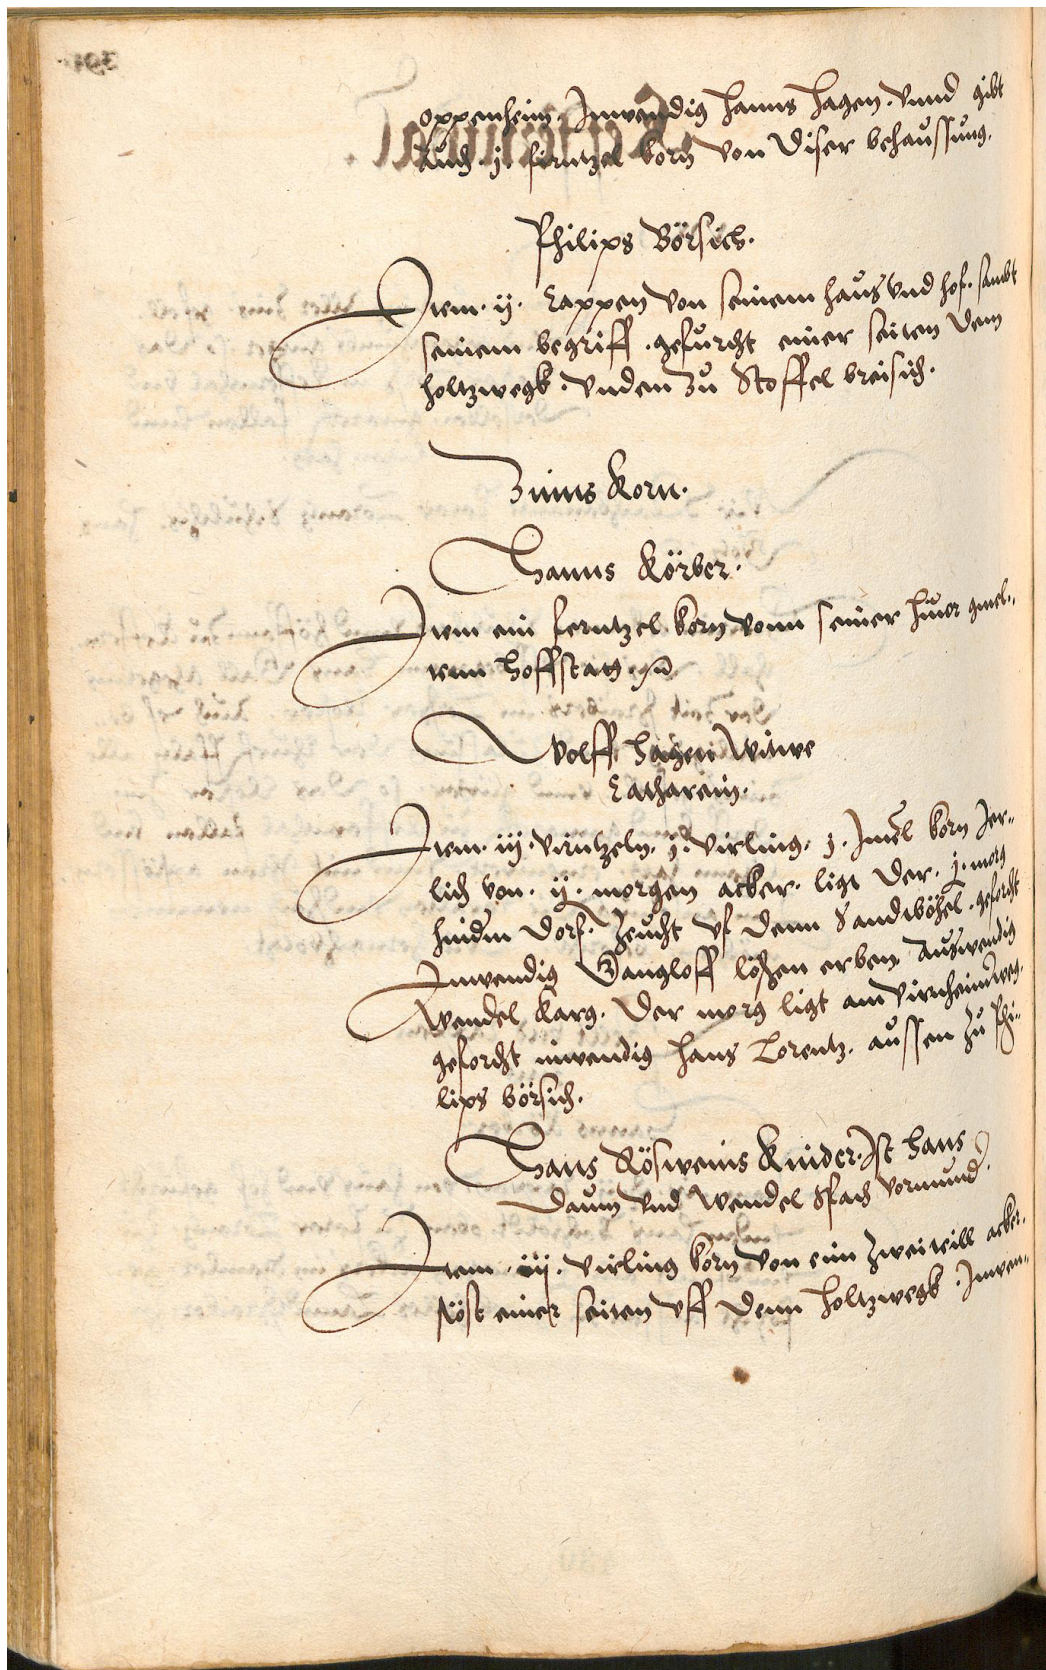 oppenheim. Inwendig hanns hagen. vnnd gibt
auch .j. firntzel korn von diser behaussung.
Philips Börsich.
Item .ij. Cappen von seinem haus vnd hof. sambt
seinem begriff. gefurcht einer seiten dem
holtzwegk. vnden zu Stoffel breisich.
Zinns Korn.
Hanns Körber.
Item ein ferntzel korn vonn seiner huor gmel-
ten hoffstatt.
Wolff hagen Witwe
Catharein.
Item .iij. virntzeln. virling. j. Imel korn Jer-
lich von .ij. morgen acker. ligt der .j. morg
hindm dorf. Zeucht vf denn Sandtböhel. geforcht
Inwendig Gangloff lößen erben. Auswendig
Wendel karg. Der morg ligt am virnheimerweg.
geforcht inwendig hans Lorentz. aussen zu Phi-
lips börsich.
Hans Rösweins Kinder. Ist hans
Daum vnd Wendel vormund.
Item .iij. virling korn von ein zweiteill acker.
stöst einer seiten vff denn holtzwegk. Inwen-